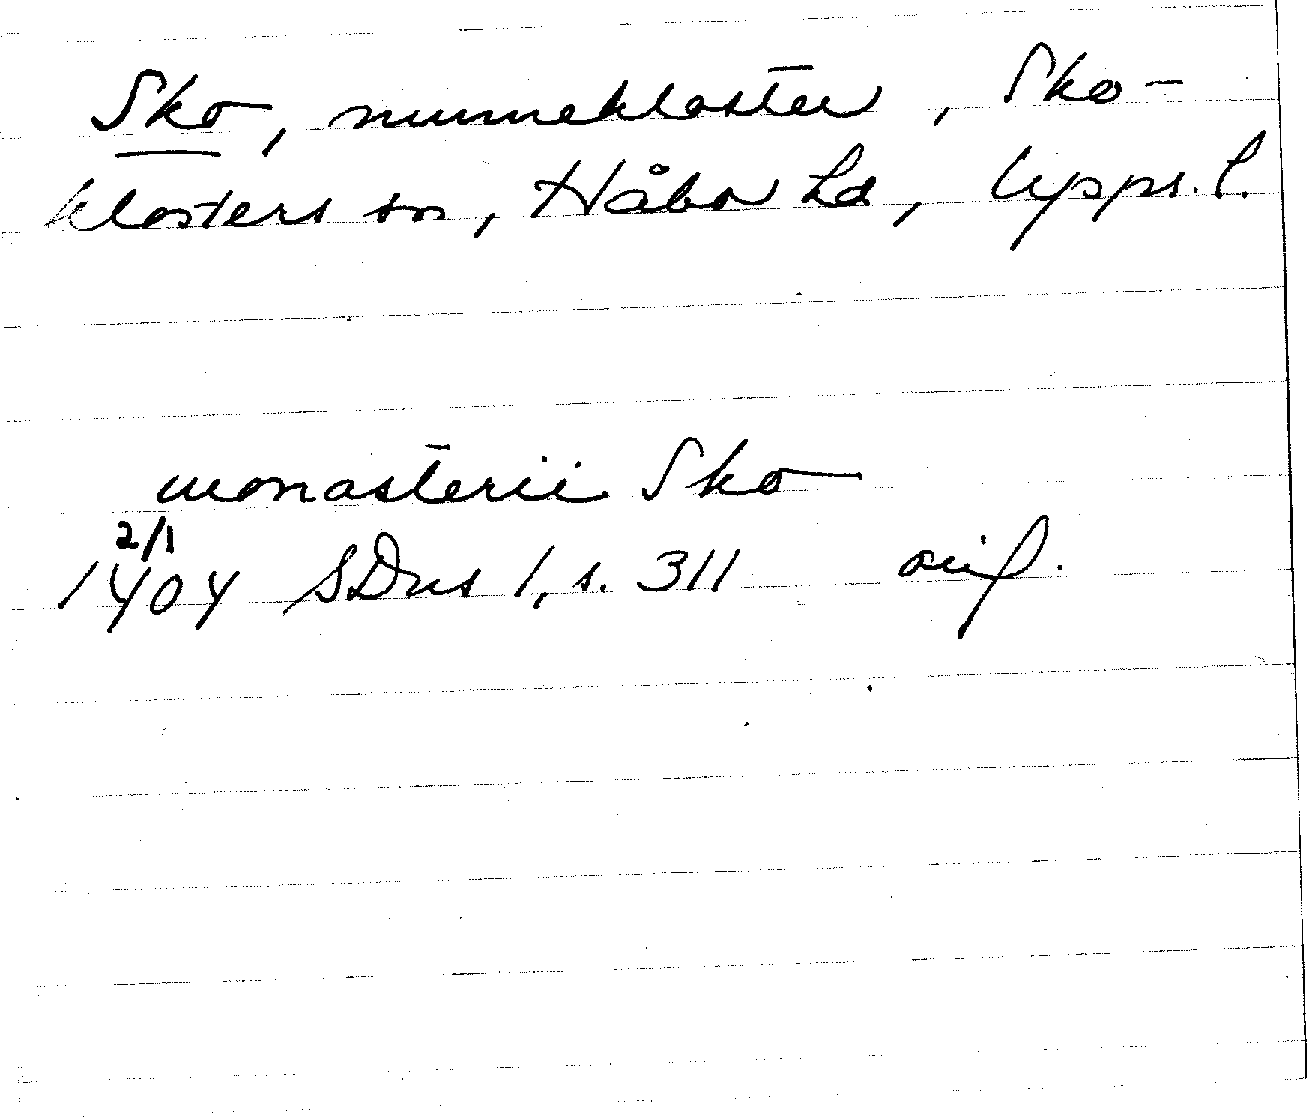 Sko, nunnekloster, Sko-
klosters sn, Håbo hd, Upps. l.
monasterii Sko
2/1
1404 SDns 1, s. 311 orig.